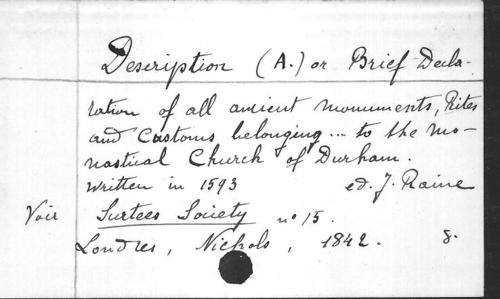 Description (A.) or Brief Decla-
ration of all ancient monuments, Rites
and Customs belonging... to the mo-
nastical Church of Durham.
written in 1593 ed. J. Raine
Voir Surtees Society no 15.
Londres, Nichols, 1842. 8.